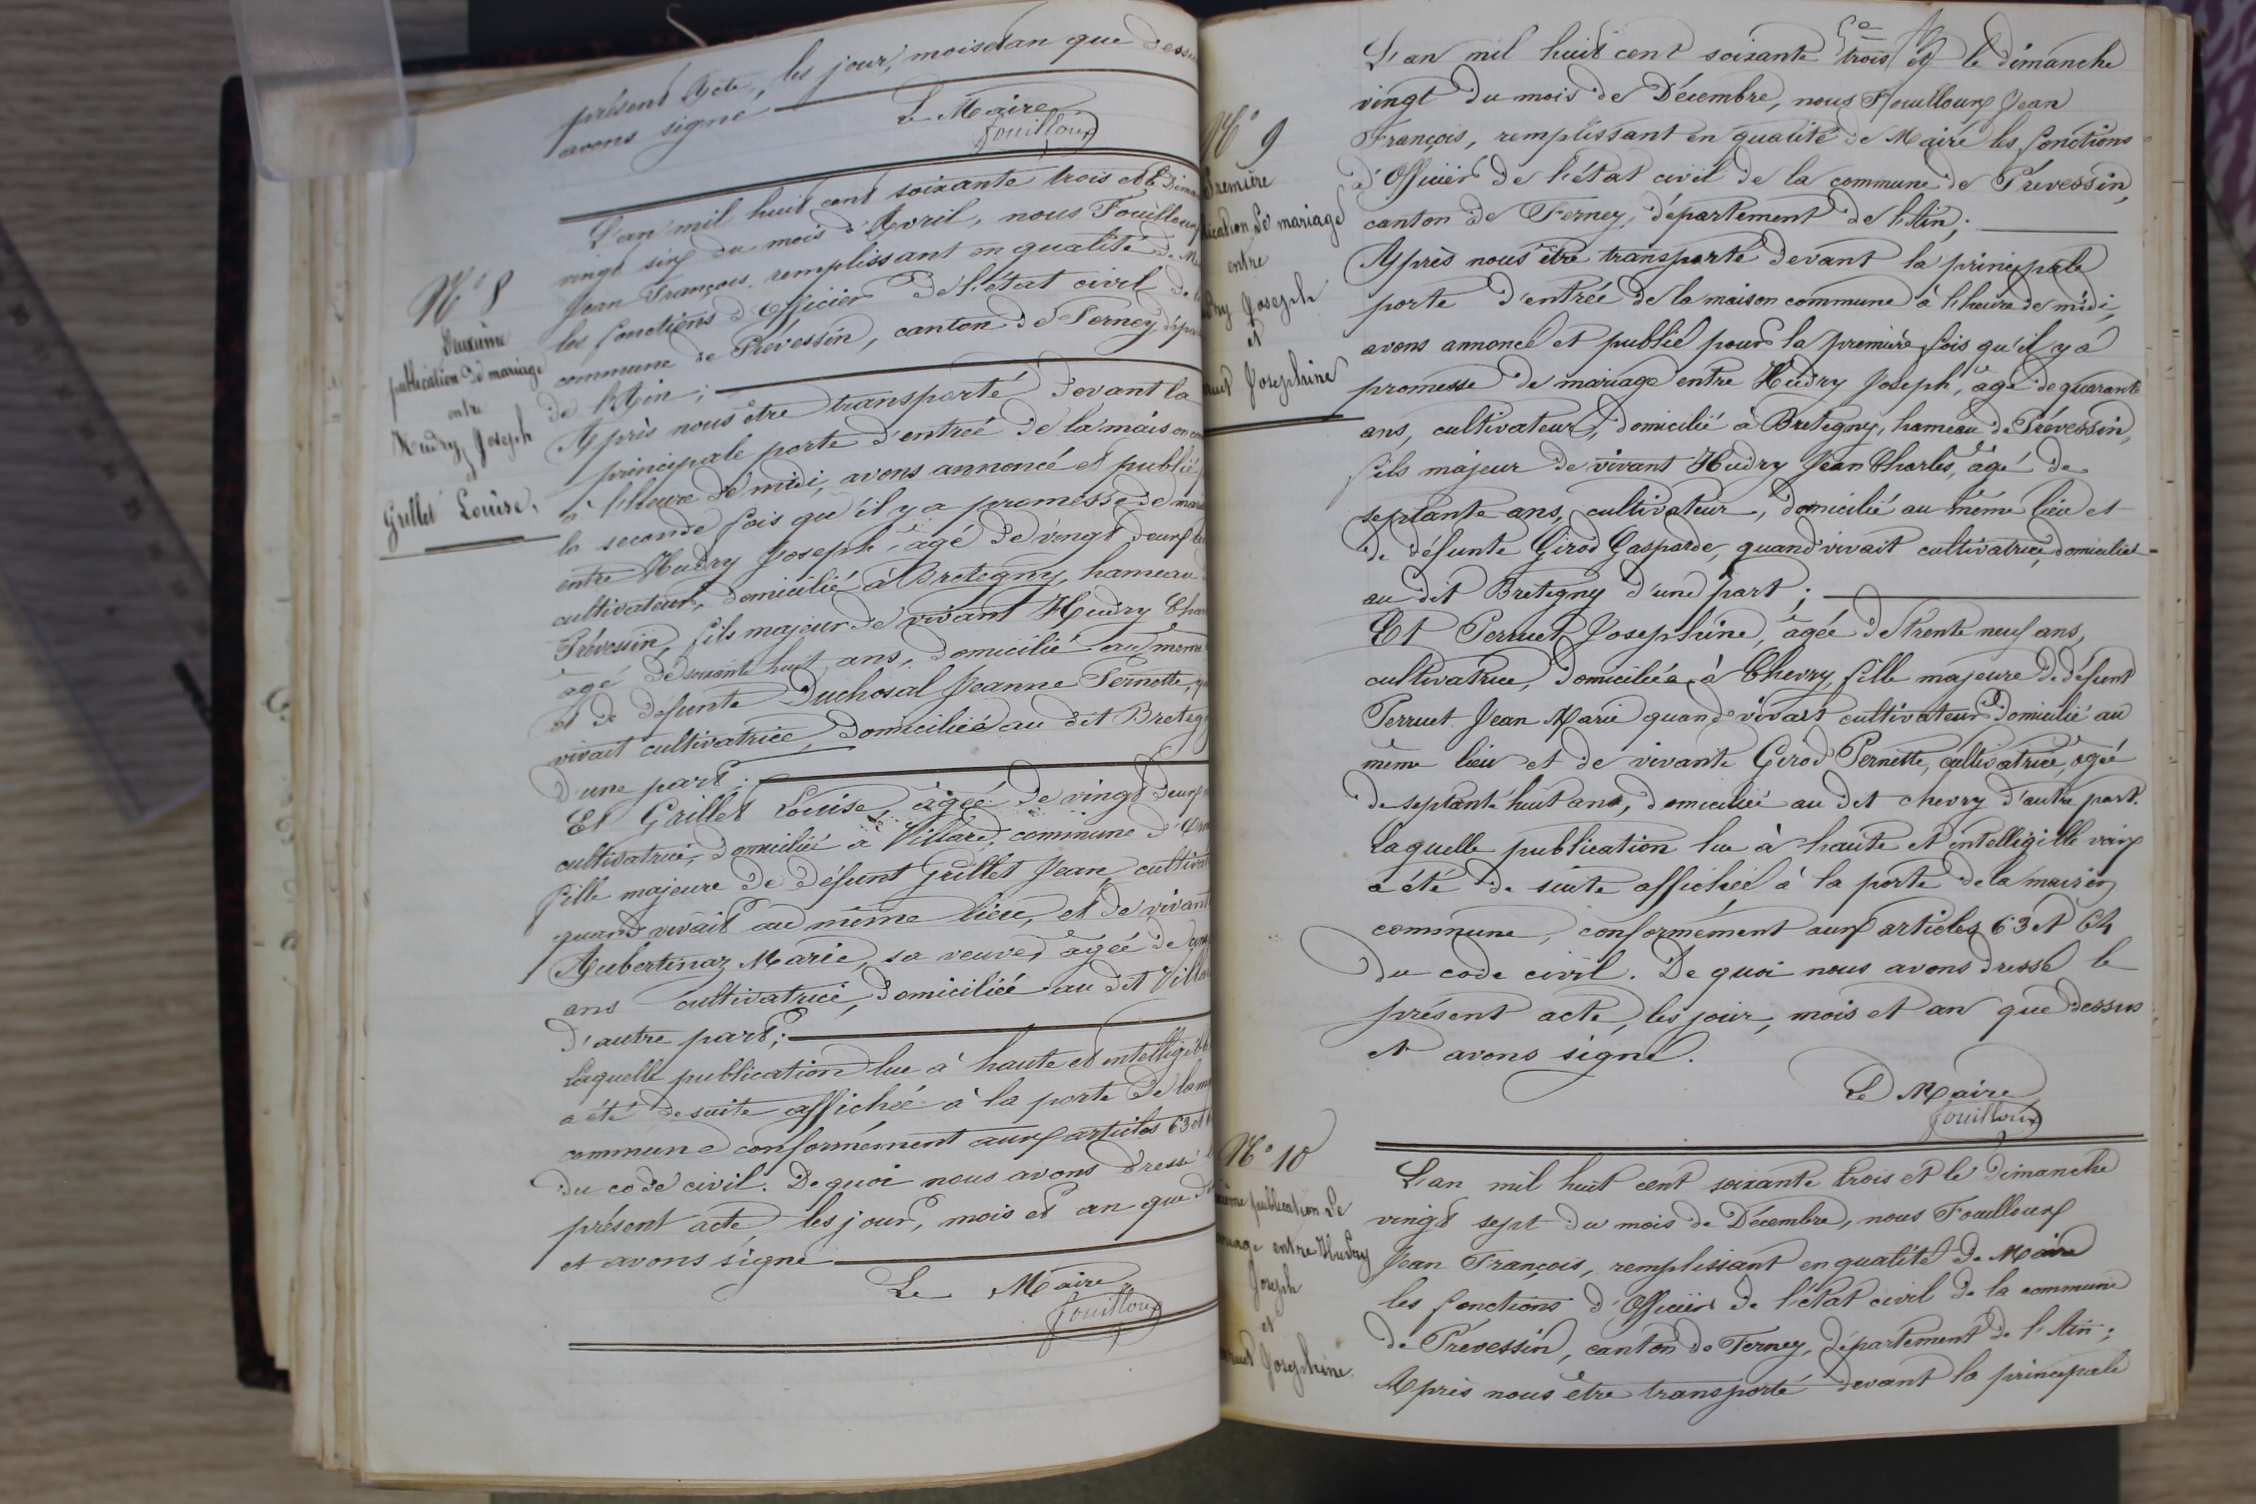 présent acte, les jour, mois et an que dessus
avons signé
Le Maire
Fouilloux
N° 8
Deuxième
publication de mariage
entre
Hudry Joseph
et
Grillet Louise.
L'an mil huit cent soixante trois et le Diman
vingt six du mois d'Avril, nous Fouilloux
Jean François, remplissant en qualité de M
les fonctions d'Officier de l'état civil de l
commune de Prévessin, canton de Ferney, dépa
de l'Ain;
Après nous être transporté devant la
principale porte d'entrée de la maison com
à l'heure de midi, avons annoncé et publié p
la seconde fois qu'il y a promesse de maria
entre Hudry Joseph, âgé de vingt deux
cultivateur, domicilié à Bretegny, hameau
Prévessin, fils majeur de vivant Hudry Char
âgé de soixante huit ans, domicilié au même
et de défunte Duchosal Jeanne Pernette, q
vivait cultivatrice, domiciliée au dit Breteg
d'une part;
Et Grillet Louise, âgée de vingt deux
cultivatrice, domiciliée à Villard, commune d'Orn
fille majeure de défunt Grillet Jean, cultivat
quand vivait au même lieu, et de vivant
Aubertinaz Marie, sa veuve, âgée de
ans cultivatrice, domiciliée au dit Villa
d'autre part;
Laquelle publication lue à haute et intelligibl
a été de suite affichée à la porte de la m
commune conformément aux articles 63 et
du code civil. De quoi nous avons dressé
présent acte, les jour, mois et an que d
et avons signé
Le Maire
Fouilloux
N° 9
Première
lication de mariage
entre
dry Joseph
et
ruet Josephine
L'an mil huit cent soixante trois et le dimanche
vingt du mois de Décembre, nous Fouilloux Jean
François, remplissant en qualité de Maire les fonctions
d'Officier de l'état civil de la commune de Prévessin,
canton de Ferney, département de l'Ain;
Après nous être transporté devant la principale
porte d'entrée de la maison commune à l'heure de midi,
avons annoncé et publié pour la première fois qu'il y a
promesse de mariage entre Hudry Joseph, âgé de quarante
ans, cultivateur, domicilié à Bretegny, hameau de Prévessin,
fils majeur de vivant Hudry Jean Charles, âgé de
septante ans, cultivateur, domicilié au même lieu et
de défunte Girod Gasparde, quand vivait cultivatrice, domiciliée
au dit Bretegny d'une part;
Et Perruet Josephine, âgée de trente neuf ans,
cultivatrice, domiciliée à Chevry, fille majeure de défunt
Perruet Jean Marie quand vivait cultivateur domicilié au
même lieu et de vivante Girod Pernette, cultivatrice, âgée
de septante huit ans, domiciliée au dit chevry d'autre part.
Laquelle publication lue à haute et intelligible voix
a été de suite affichée à la porte de la maison
commune, conformément aux articles 63 et 64
du code civil. De quoi nous avons dressé le
présent acte, les jour, mois et an que dessus
et avons signé.
Le Maire
Fouilloux
N° 10
ième publication de
riage entre Hudry
Joseph
et
rruet Josephine.
L'an mil huit cent soixante trois et le Dimanche
vingt sept du mois de Décembre, nous Fouilloux
Jean François, remplissant en qualité de Maire
les fonctions d'Officier de l'état civil de la commune
de Prévessin, canton de Ferney, département de l'Ain;
Après nous être transporté devant la principale